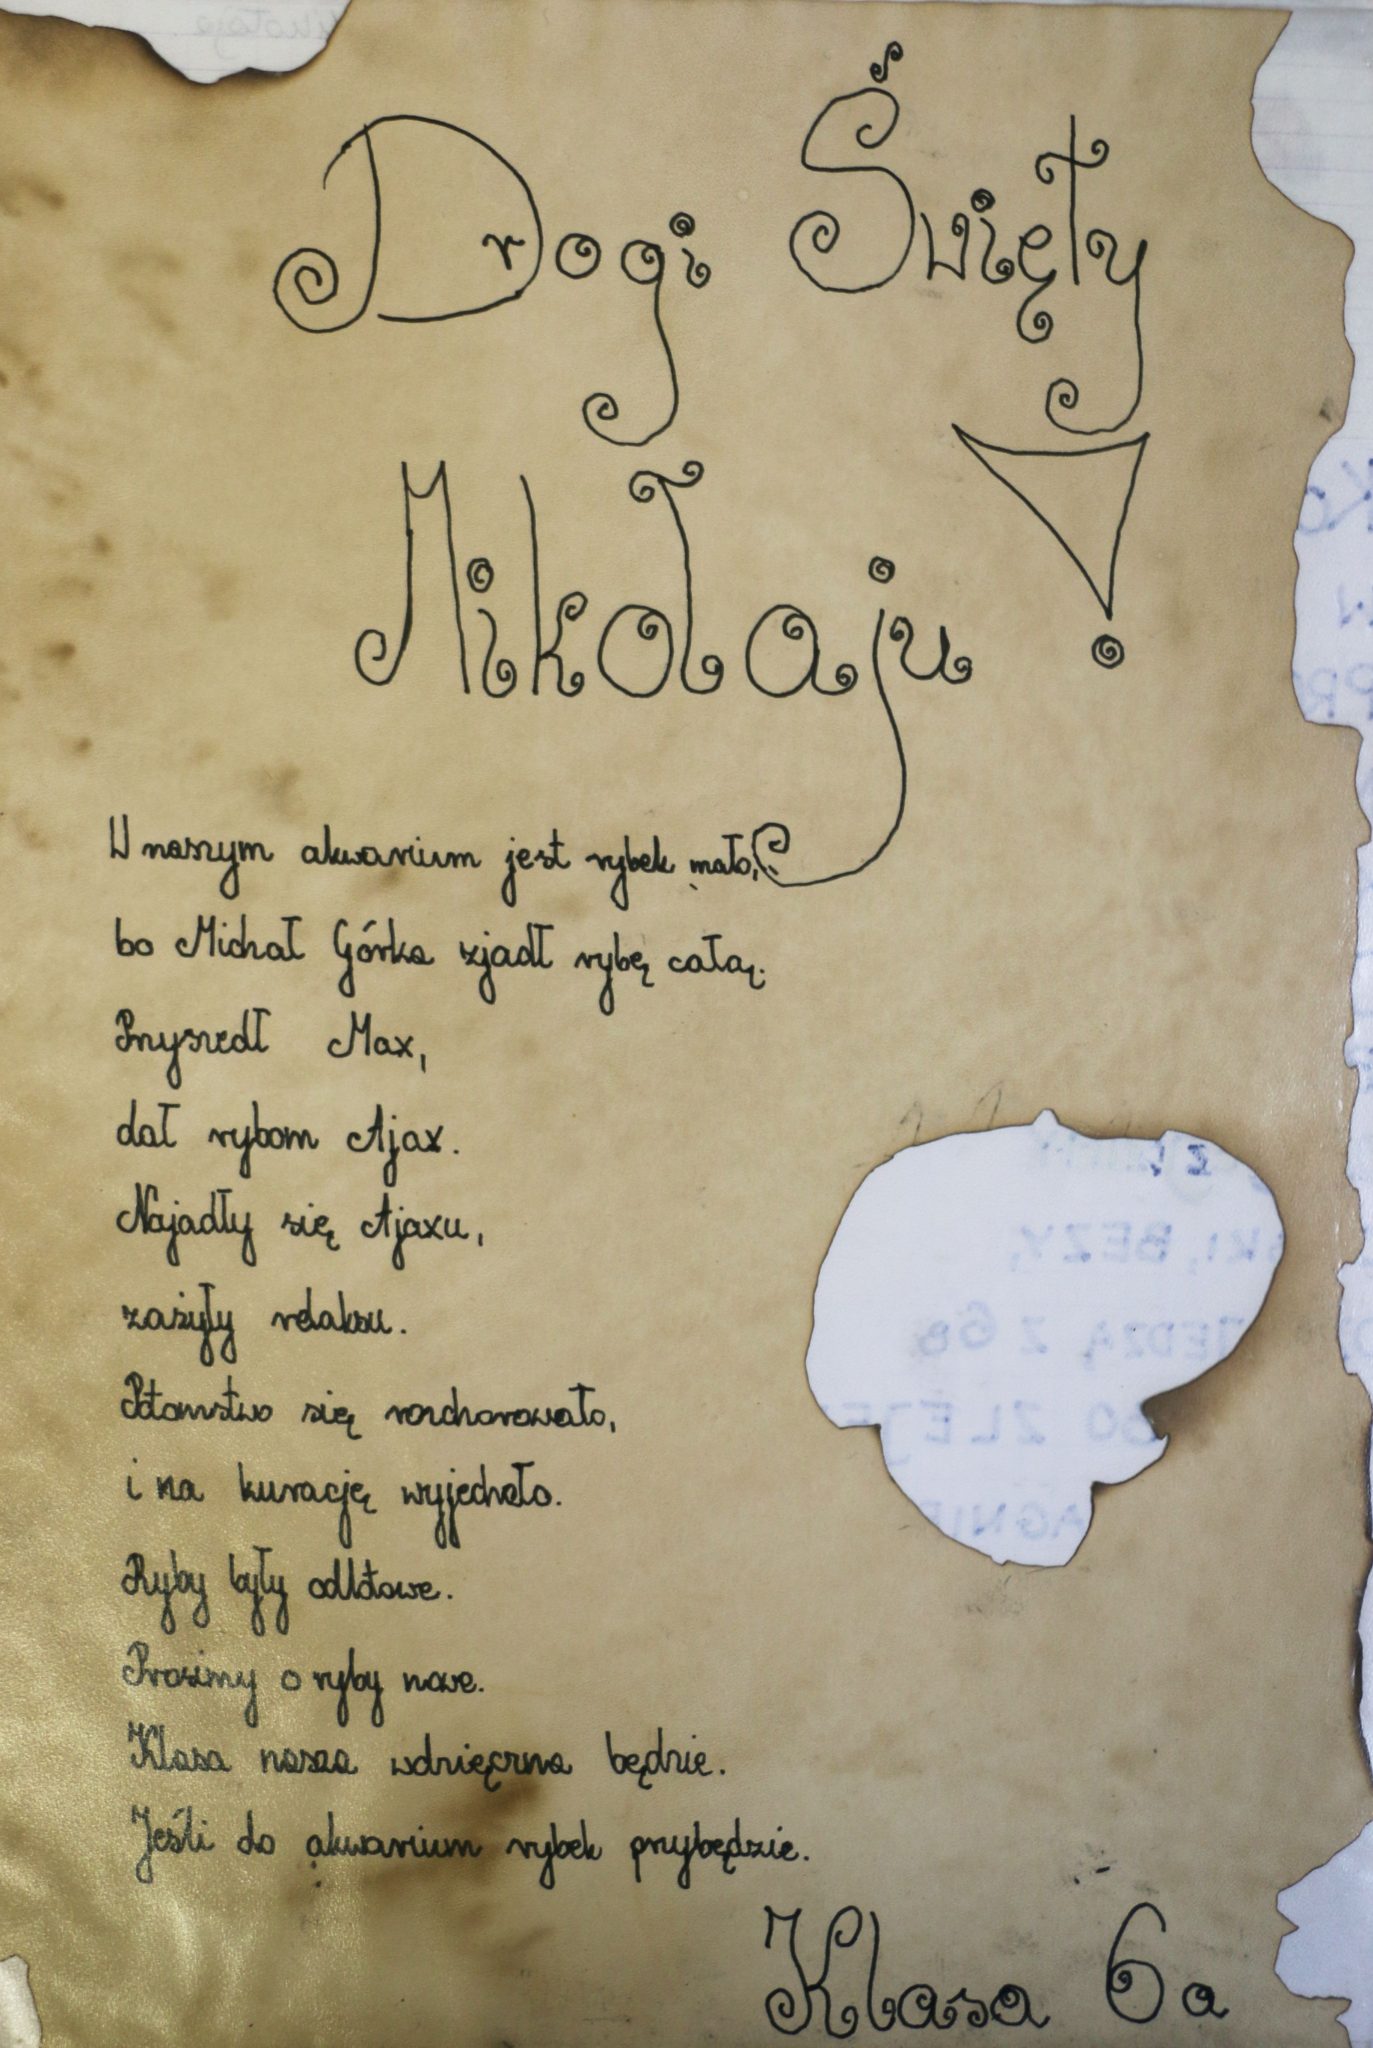 Drogi Święty
Mikołaju!
W naszym akwarium jest rybek mało,
bo Michał Górka zjadł rybę całą.
Przyszedł Max,
dał rybom Ajax.
Najadły się Ajaxu,
zażyły relaksu.
Potomstwo się rozchorowało,
i na kurację wyjechało.
Ryby były odlotowe.
Prosimy o ryby nowe.
Klasa nasza wdzięczna będzie.
Jeśli do akwarium rybek przybędzie.
BEZY,
Z 6B
Klasa 6a